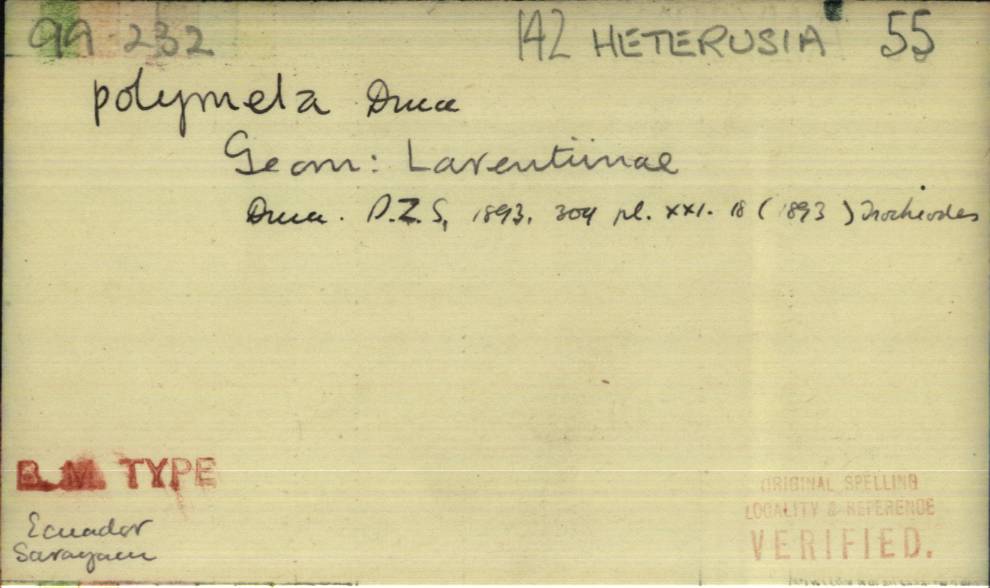 99 232 142 HETERUSIA 55
polymela Druce
Geom: Larentiinae
Druce. P.Z.S, 1893. 309 pl. XXI. 18 (1893) Trochiodes
B.M. TYPE
Ecuador
Sarayacu
ORIGINAL SPELLING
LOCALITY & REFERENCE
VERIFIED.